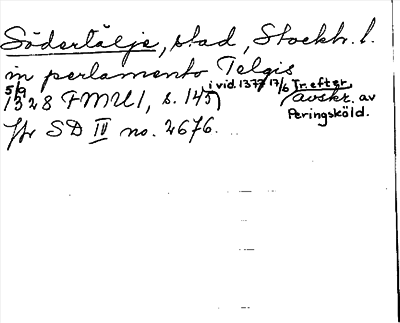 Södertälje, stad, Stockh. l.
in perlamento Telgis
5/9 1328 FMU 1, s. 145 i vid. 1377 17/6 Tr. efter avskr. av Peringsköld.
Jfr SD IV no. 2676.